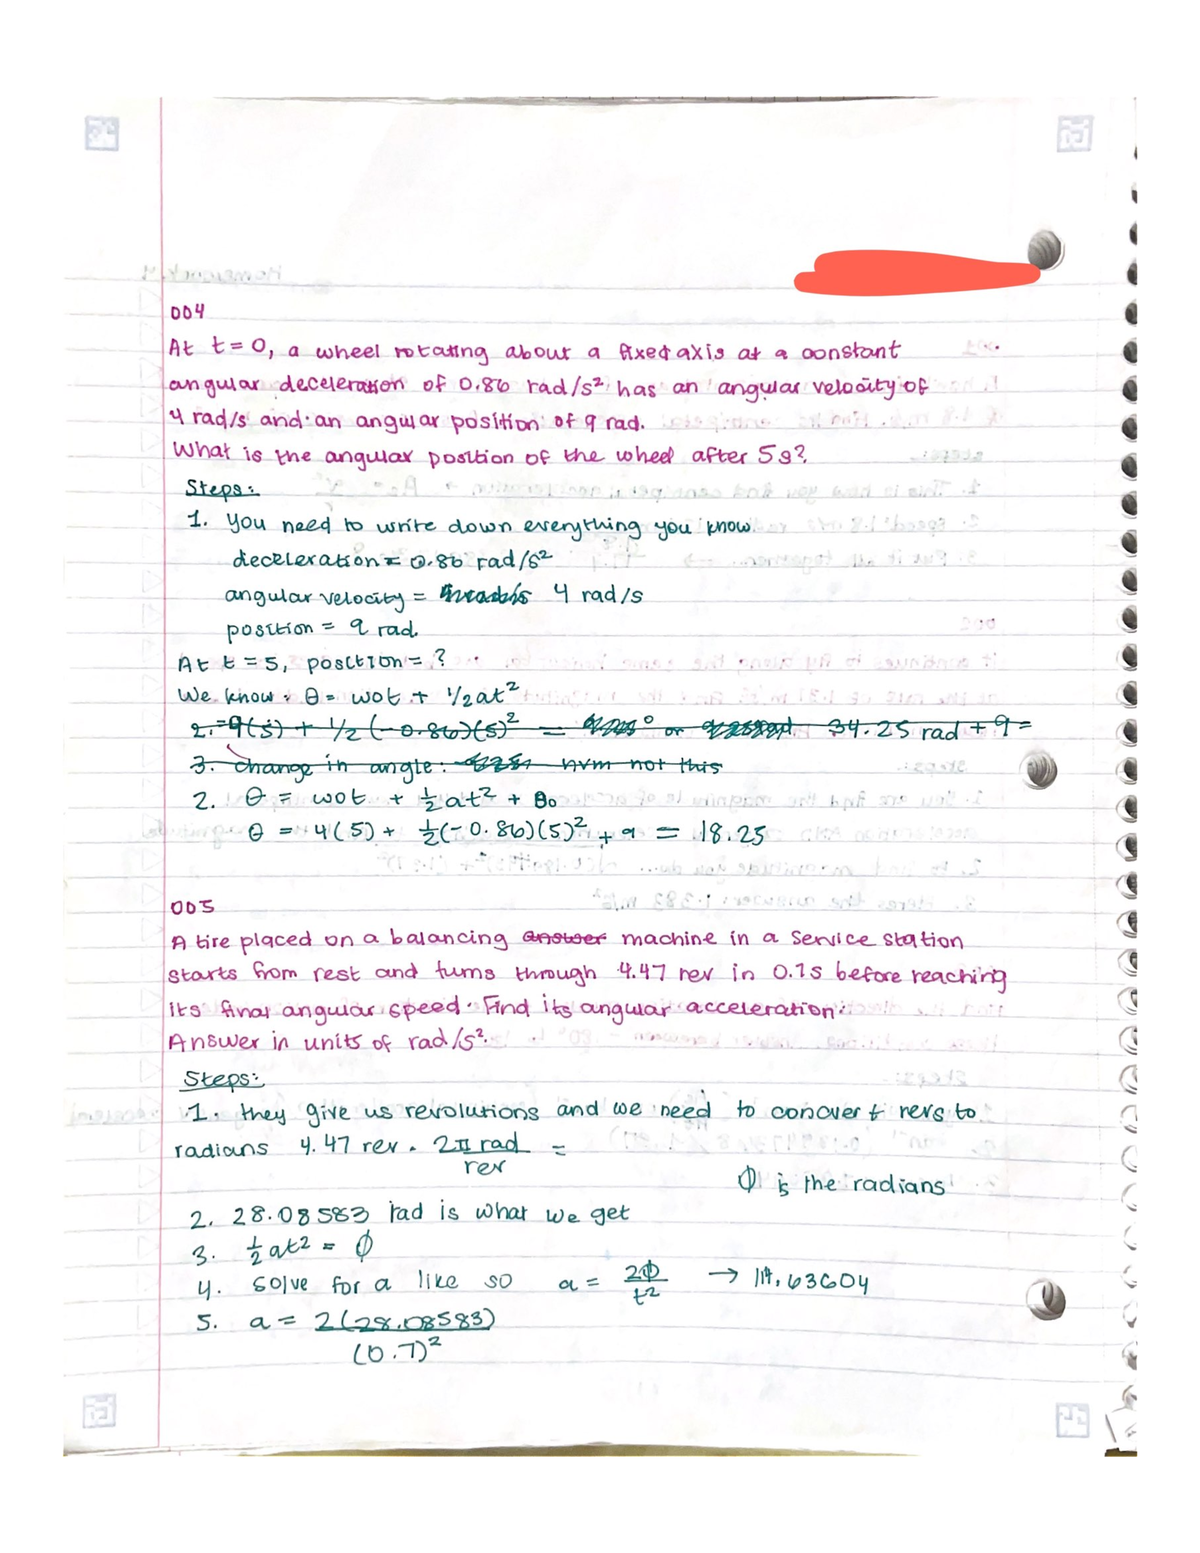 004
At t = 0, a wheel rotating about a fixed axis at a constant
angular deceleration of 0.86 rad/s² has an angular velocity of
4 rad/s and an angular position of 9 rad.
What is the angular position of the wheel after 5s?
Steps:
1. you need to write down everything you know
deceleration = 0.86 rad/s²
angular velocity = 4 rad/s
position = 9 rad.
At t = 5, position = ?
We know: θ = wot + 1/2at²
2. =9(5) + 1/2(-0.86)(5)² = or 34.25 rad + 9 =
3. change in angle: nvm not this
2. θ = wot + 1/2at² + θo
θ = 4(5) + 1/2(-0.86)(5)² + 9 = 18.25
005
A tire placed on a balancing answer machine in a service station
starts from rest and turns through 4.47 rev in 0.7s before reaching
its final angular speed. Find its angular acceleration.
Answer in units of rad/s².
Steps:
1. they give us revolutions and we need to conver t revs to
radians 4.47 rev . 2π rad/rev =
Φ is the radians
2. 28.08583 rad is what we get
3. 1/2at² = Φ
4. solve for a like so a = 2Φ/t² → 114.63604
5. a = 2(28.08583)/(0.7)²